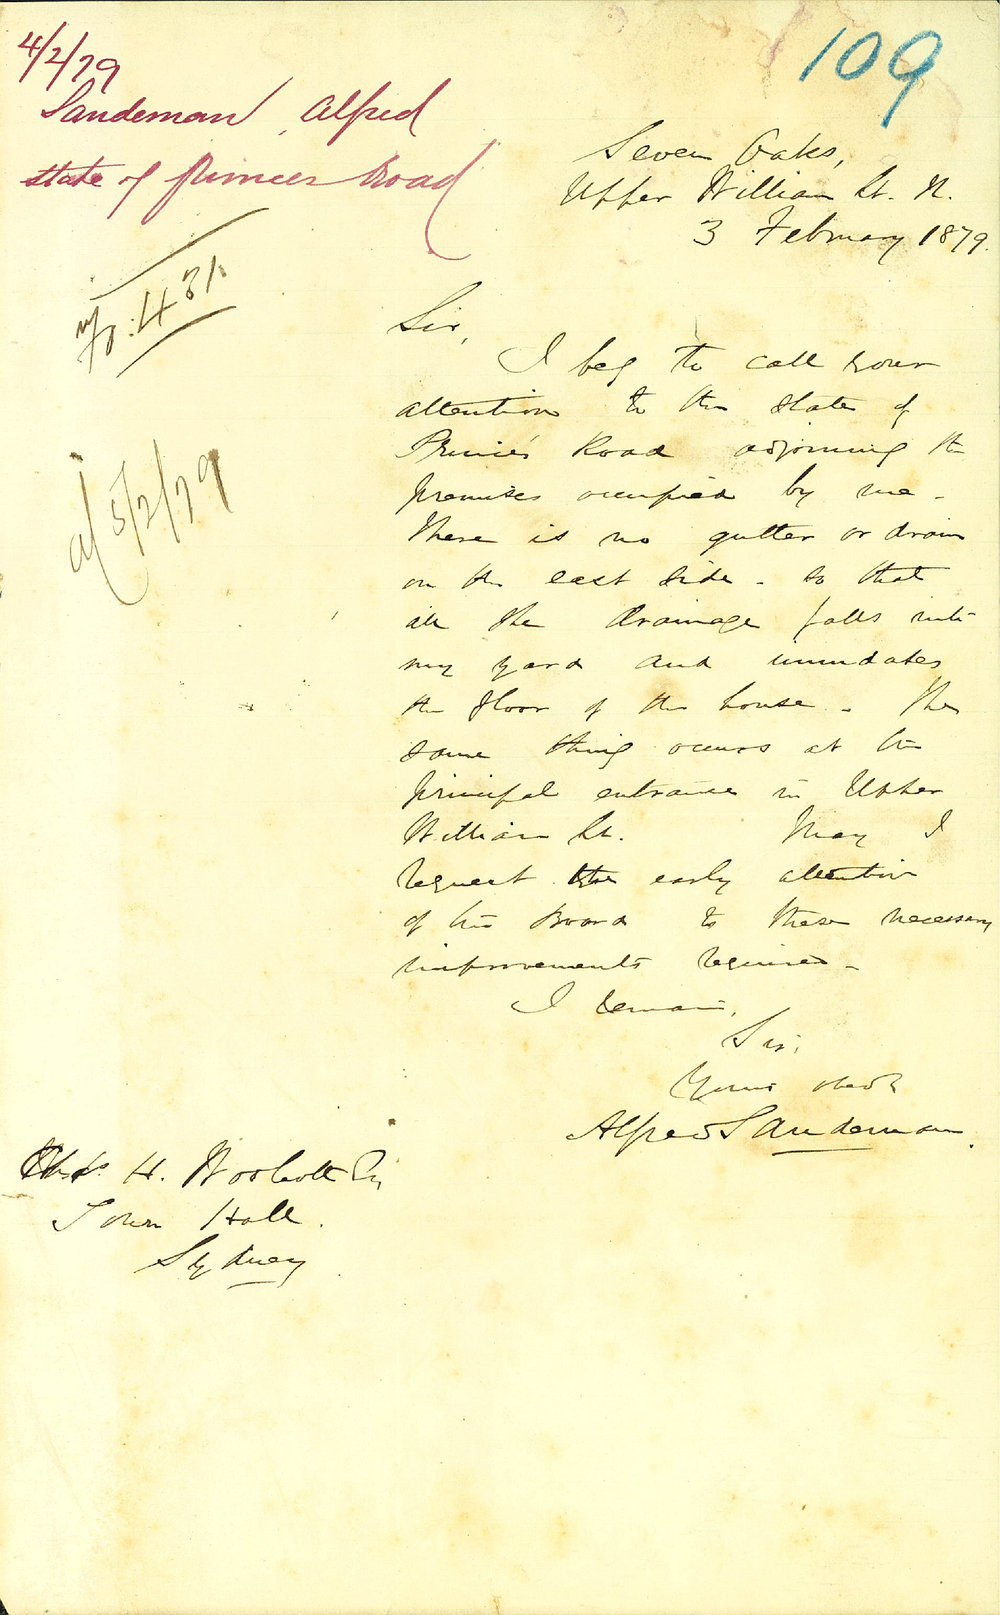 4/2/79
109
Sandeman, Alfred
state of Princes Road
Seven Oaks,
Upper William St. N.
3 February 1879.
431
5/2/79
Sir,
I beg to call your
attention to the state of
Prince's Road adjoining the
premises occupied by me.
There is no gutter or drain
on the east side - so that
all the drainage falls into
my yard and inundates
the floor of the house. The
same thing occurs at the
principal entrance in Upper
William St. May I
request the early attention
of the Board to these necessary
improvements required -
I remain,
Sir,
Yours obedt
Alfred Sandeman.
Chas. H. Woolcott Esq
Town Hall.
Sydney